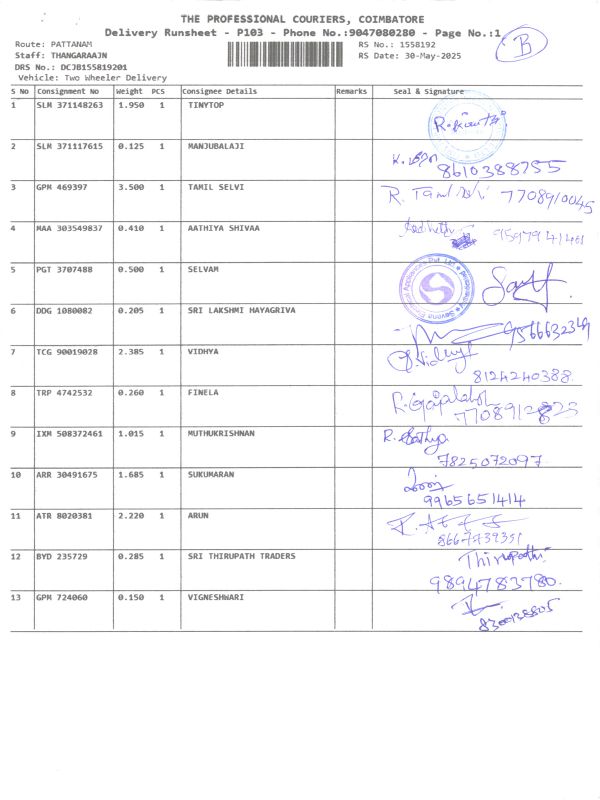 THE PROFESSIONAL COURIERS, COIMBATORE
Delivery Runsheet - P103 - Phone No.:9047080280 - Page No.:1
B
Route: PATTANAM RS No.: 1558192
Staff: THANGARAAJN RS Date: 30-May-2025
DRS No.: DCJB155819201
Vehicle: Two Wheeler Delivery
S No Consignment No Weight PCS Consignee Details Remarks Seal & Signature
1 SLM 371148263 1.950 1 TINYTOP
2 SLM 371117615 0.125 1 MANJUBALAJI
8610388755
3 GPM 469397 3.500 1 TAMIL SELVI R. Tamil Selvi 7708910045
4 MAA 303549837 0.410 1 AATHIYA SHIVAA
5 PGT 3707488 0.500 1 SELVAM
6 DDG 1080082 0.205 1 SRI LAKSHMI HAYAGRIVA
9566632369
7 TCG 90019028 2.385 1 VIDHYA
8124240388
8 TRP 4742532 0.260 1 FINELA
9 IXM 508372461 1.015 1 MUTHUKRISHNAN R. Sathya
7825072097
10 ARR 30491675 1.685 1 SUKUMARAN
9965651414
11 ATR 8020381 2.220 1 ARUN
8667739351
12 BYD 235729 0.285 1 SRI THIRUPATH TRADERS Thirupathi
9894783780.
13 GPM 724060 0.150 1 VIGNESHWARI